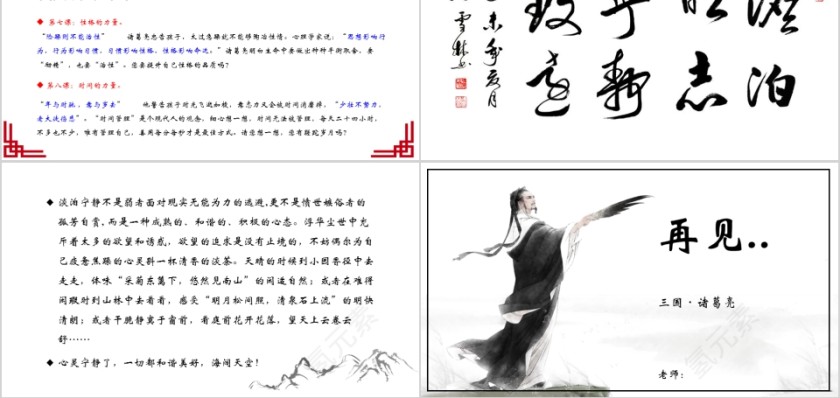 ◆ 第七课:性格的力量。
“险躁则不能治性” 诸葛亮忠告孩子,太过急躁就不能够陶冶性情。心理学家说:“思想影响行
为,行为影响习惯,习惯影响性格,性格影响命运。”诸葛亮明白生命中要做出种种平衡取舍,要
“励精”,也要“治性”。您要提升自己性格的品质吗?
◆ 第八课:时间的力量。
“年与时驰,意与岁去” 他警告孩子时光飞逝如梭,意志力又会被时间消磨掉,“少壮不努力,
老大徒伤悲”。“时间管理”是个现代人的观念,细心想一想,时间无法被管理,每天二十四小时,
不多也不少,唯有管理自己,善用每分每秒才是最佳方式。请您想一想,您有蹉跎岁月吗?
澹泊
明志
宁静
致远
◆ 淡泊宁静不是弱者面对现实无能为力的逃避,更不是愤世嫉俗者的
孤芳自赏,而是一种成熟的、和谐的、积极的心态。浮华尘世中充
斥着太多的欲望和诱惑,欲望的追求是没有止境的,不妨偶尔为自
己疲惫焦躁的心灵斟一杯清香的淡茶。天晴的时候到小园香径中去
走走,体味“采菊东篱下,悠然见南山”的闲适自然;或者在难得
闲暇时到山林中去看看,感受“明月松间照,清泉石上流”的明快
清朗;或者干脆静寓于窗前,看庭前花开花落,望天上云卷云
舒……
◆ 心灵宁静了,一切都和谐美好,海阔天空!
再见..
三国·诸葛亮
老师:
氢元素
氢元素